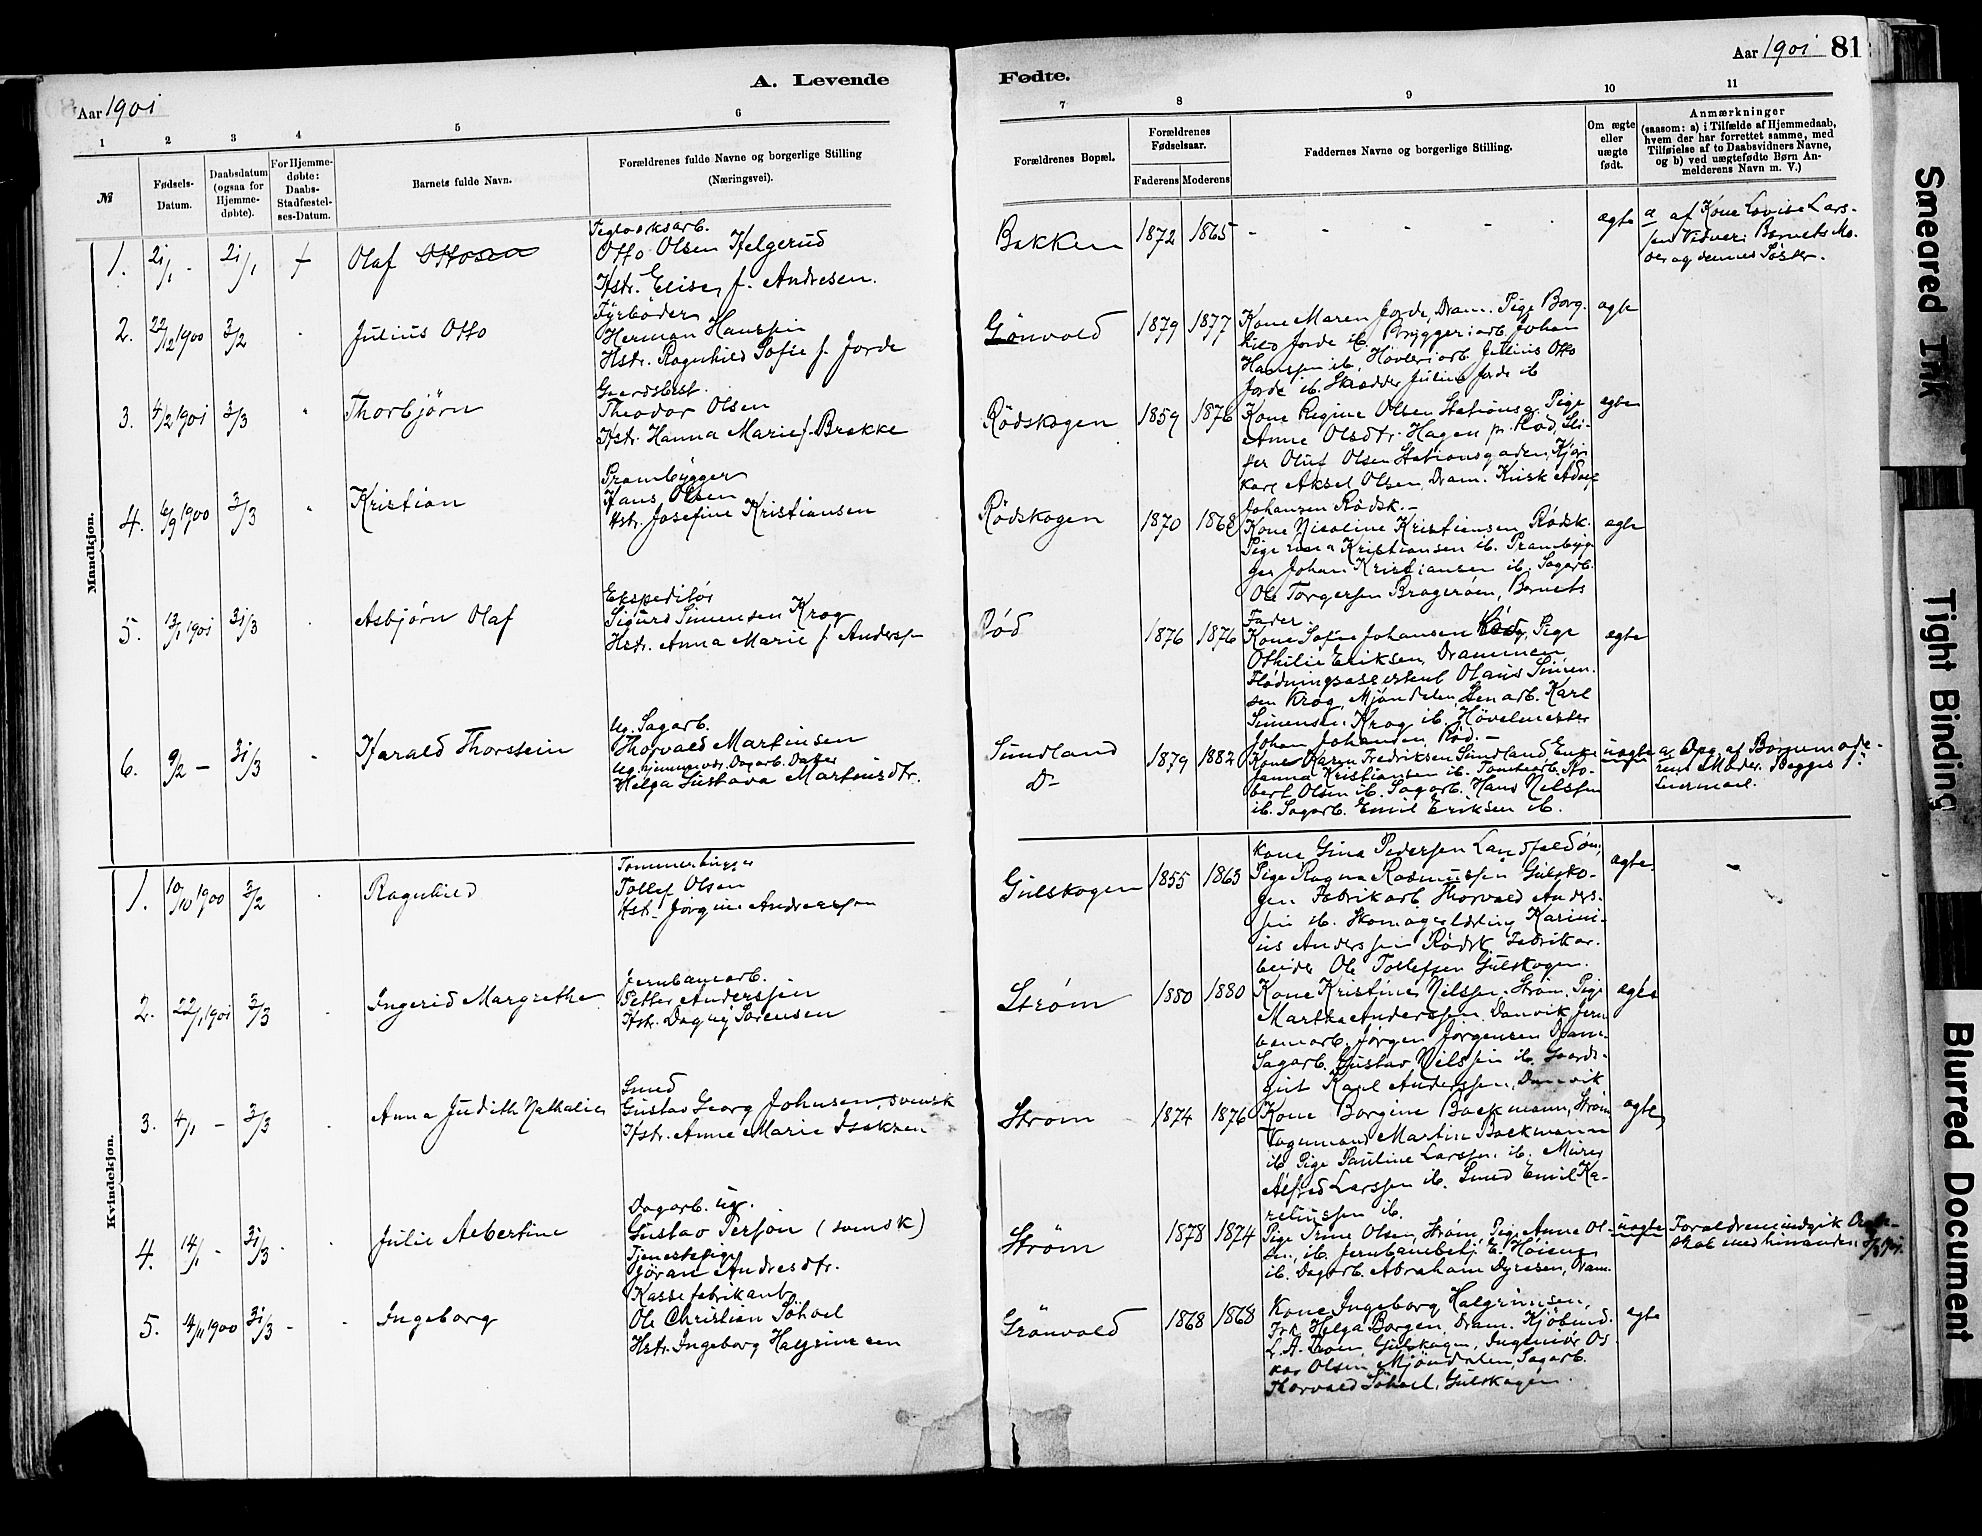 Aar 1901
A. Levende
Fødte.
Aar 1901 81
1 2 3 4 5 6 7 8 9 10 11
№
Fødsels-
Datum.
Daabsdatum
(ogsaa for
Hjemme-
døbte).
For Hjemme-
døbte:
Daabs-
Stadfæstel-
ses-Datum.
Barnets fulde Navn.
Forældrenes fulde Navne og borgerlige Stilling
(Næringsvei).
Forældrenes Bopæl.
Forældrenes
Fødselsaar.
Faderens Moderens
Faddernes Navne og borgerlige Stilling.
Om ægte
eller
uægte
født.
Anmærkninger
(saasom: a) i Tilfælde af Hjemmedaab,
hvem der har forrettet samme, med
Tilføielse af to Daabsvidners Navne,
og b) ved uægtefødte Børn An-
melderens Navn m. V.)
Mandkjøn.
1. 21/1 - 21/1 + Olaf Ottosen
Teglverksarb.
Otto Olsen Helgerud
Hstr. Elise f. Andresen.
Bakken 1872 1865 - - - - - ægte
a af Kone Lovise Lars-
sen Vidner: Barnets Mo-
der og dennes Søster.
2. 22/12 1900 3/2 Julius Otto
Fyrbøder
Herman Hanssen
Hstr. Ragnhild Sofie f. Jorde
Grönvold 1879 1877
Kone Maren Jorde, Dram. Pige Borg-
hild Jorde ib. Bryggeriarb. Johan
Hanssen ib., Høvleriarb. Julius Otto
Jorde ib. Skrædder Julius Jorde ib
ægte
3. 4/2 1901 3/3 Thorbjörn
Gaardsbest.
Theodor Olsen
Hstr. Hanna Marie f. Brekke
Rødskogen 1859 1876
Kone Regine Olsen Stationsg. Pige
Anne Olsdtr. Hagen p. Rød, Sli-
per Oluf Olsen Stationsgaden, Kjør
karl Aksel Olsen, Dram. Kusk Adolf
Johansen Rødsk. -
ægte
4. 6/9 1900 3/3 Kristian
Prambygger
Hans Olsen
Hstr. Josefine Kristiansen
Rødskogen 1870 1868
Kone Nicoline Kristiansen, Rødsk.
Pige Kristiansen ib. Prambyg-
ger Johan Kristiansen ib. Sagarb.
Ole Torgersen Bragerøen, Barnets
Fader.
ægte
5. 13/1 1901 31/3 Asbjørn Olaf
Ekspeditør
Sigurd Simensen Krog
Hstr. Anna Marie f. Anders-
Rød 1876 1876
Kone Sofie Johansen Rød, Pige
Othilie Eriksen, Drammen
Flødningsassistent Olaus Simen-
sen Krog, Mjøndalen, Stenarb. Karl
Simensen Krog ib. Høvelmester
Johan Johansen Rød. -
ægte
6. 9/2 - 31/3 Harald Thorstein
Ug. Sagarb.
Thorvald Martinsen
Ug. hjemmevær. Dagarb. Datter
Helga Gustava Martinsdtr.
Sundland
D- 1879 1882
Kone Karen Fredriksen Sundland Enke
Janna Kristiansen ib. Tomtearb. Ro-
bert Olsen ib. Sagarb. Hans Nilssen
ib. Sagarb. Emil Eriksen ib.
uægte
a Opg. af Barnemode-
rens Moder. Begges 1ste
Leiermaal.
Kvindekjøn.
1. 10/10 1900 3/2 Ragnhild
Tømmerhugger
Tollef Olsen
Hstr. Jørgine Anderssen
Gulskogen 1855 1863
Kone Gina Pedersen Landfaldøen,
Pige Ragna Rasmussen Gulsko-
gen Fabrikarb. Thorvald Anders-
sen ib. Skomagerlærling Karini-
us Anderssen Rødsk. Fabrikar-
beider Ole Tollefsen Gulskogen.
ægte. -
2. 22/1 1901 3/3 Ingerid Margrethe
Jernbanearb.
Petter Anderssen
Hstr. Dagny Sørensen
Strøm 1880 1880
Kone Kristine Nilssen Strøm, Pige
Martha Anderssen, Danvik Jern-
banearb. Jørgen Jørgensen Dram.
Sagarb. Gustav Nilssen ib. Gaards-
gut Karl Anderssen, Danvik
ægte
3. 4/1 - 3/3 Anna Judith Nathalie
Smed
Gustav Georg Johnsen, svensk
Hstr. Anne Marie Isaksen
Strøm 1874 1876
Kone Borgine Backmann, Strøm
Vognmand Martin Backmann
ib. Pige Pauline Larssen. ib. Murer
Alfred Larssen ib. Smed Emil Ka-
relinssen ib.
ægte
4. 14/1 - 31/3 - Julie Albertine
Dagarb. ug.
Gustav Persson (svensk)
Tjenestepige
Göran Andresdtr.
Strøm 1878 1874
Pige Trine Olsen, Strøm, Pige Anne Ol-
sen, ib. Jernbanebetj. E. Høiene
ib. Dagarb. Abraham Dyresen, Dram.
uægte
Forældrene indgik Ægte-
skab med hinanden
5. 4/11 1900 31/3 - Ingeborg
Kassefabrikant
Ole Christian Söhoel
Hstr. Ingeborg Halgrimsen
Grönvold 1868 1868
Kone Ingeborg Halgrimsen,
Frk. Helga Borgen, Dram. Kjöbmd.
L. A. Gulskogen, Ingeniör Os-
kar Olsen Mjöndalen, Sagarb.
Thorvald Söhoel, Gulskogen.
ægte
Smeared Ink
Tight Binding
Blurred Document